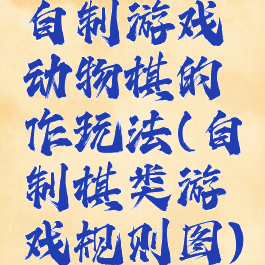 自制游戏
动物棋的
作玩法(自
制棋类游
戏规则图)